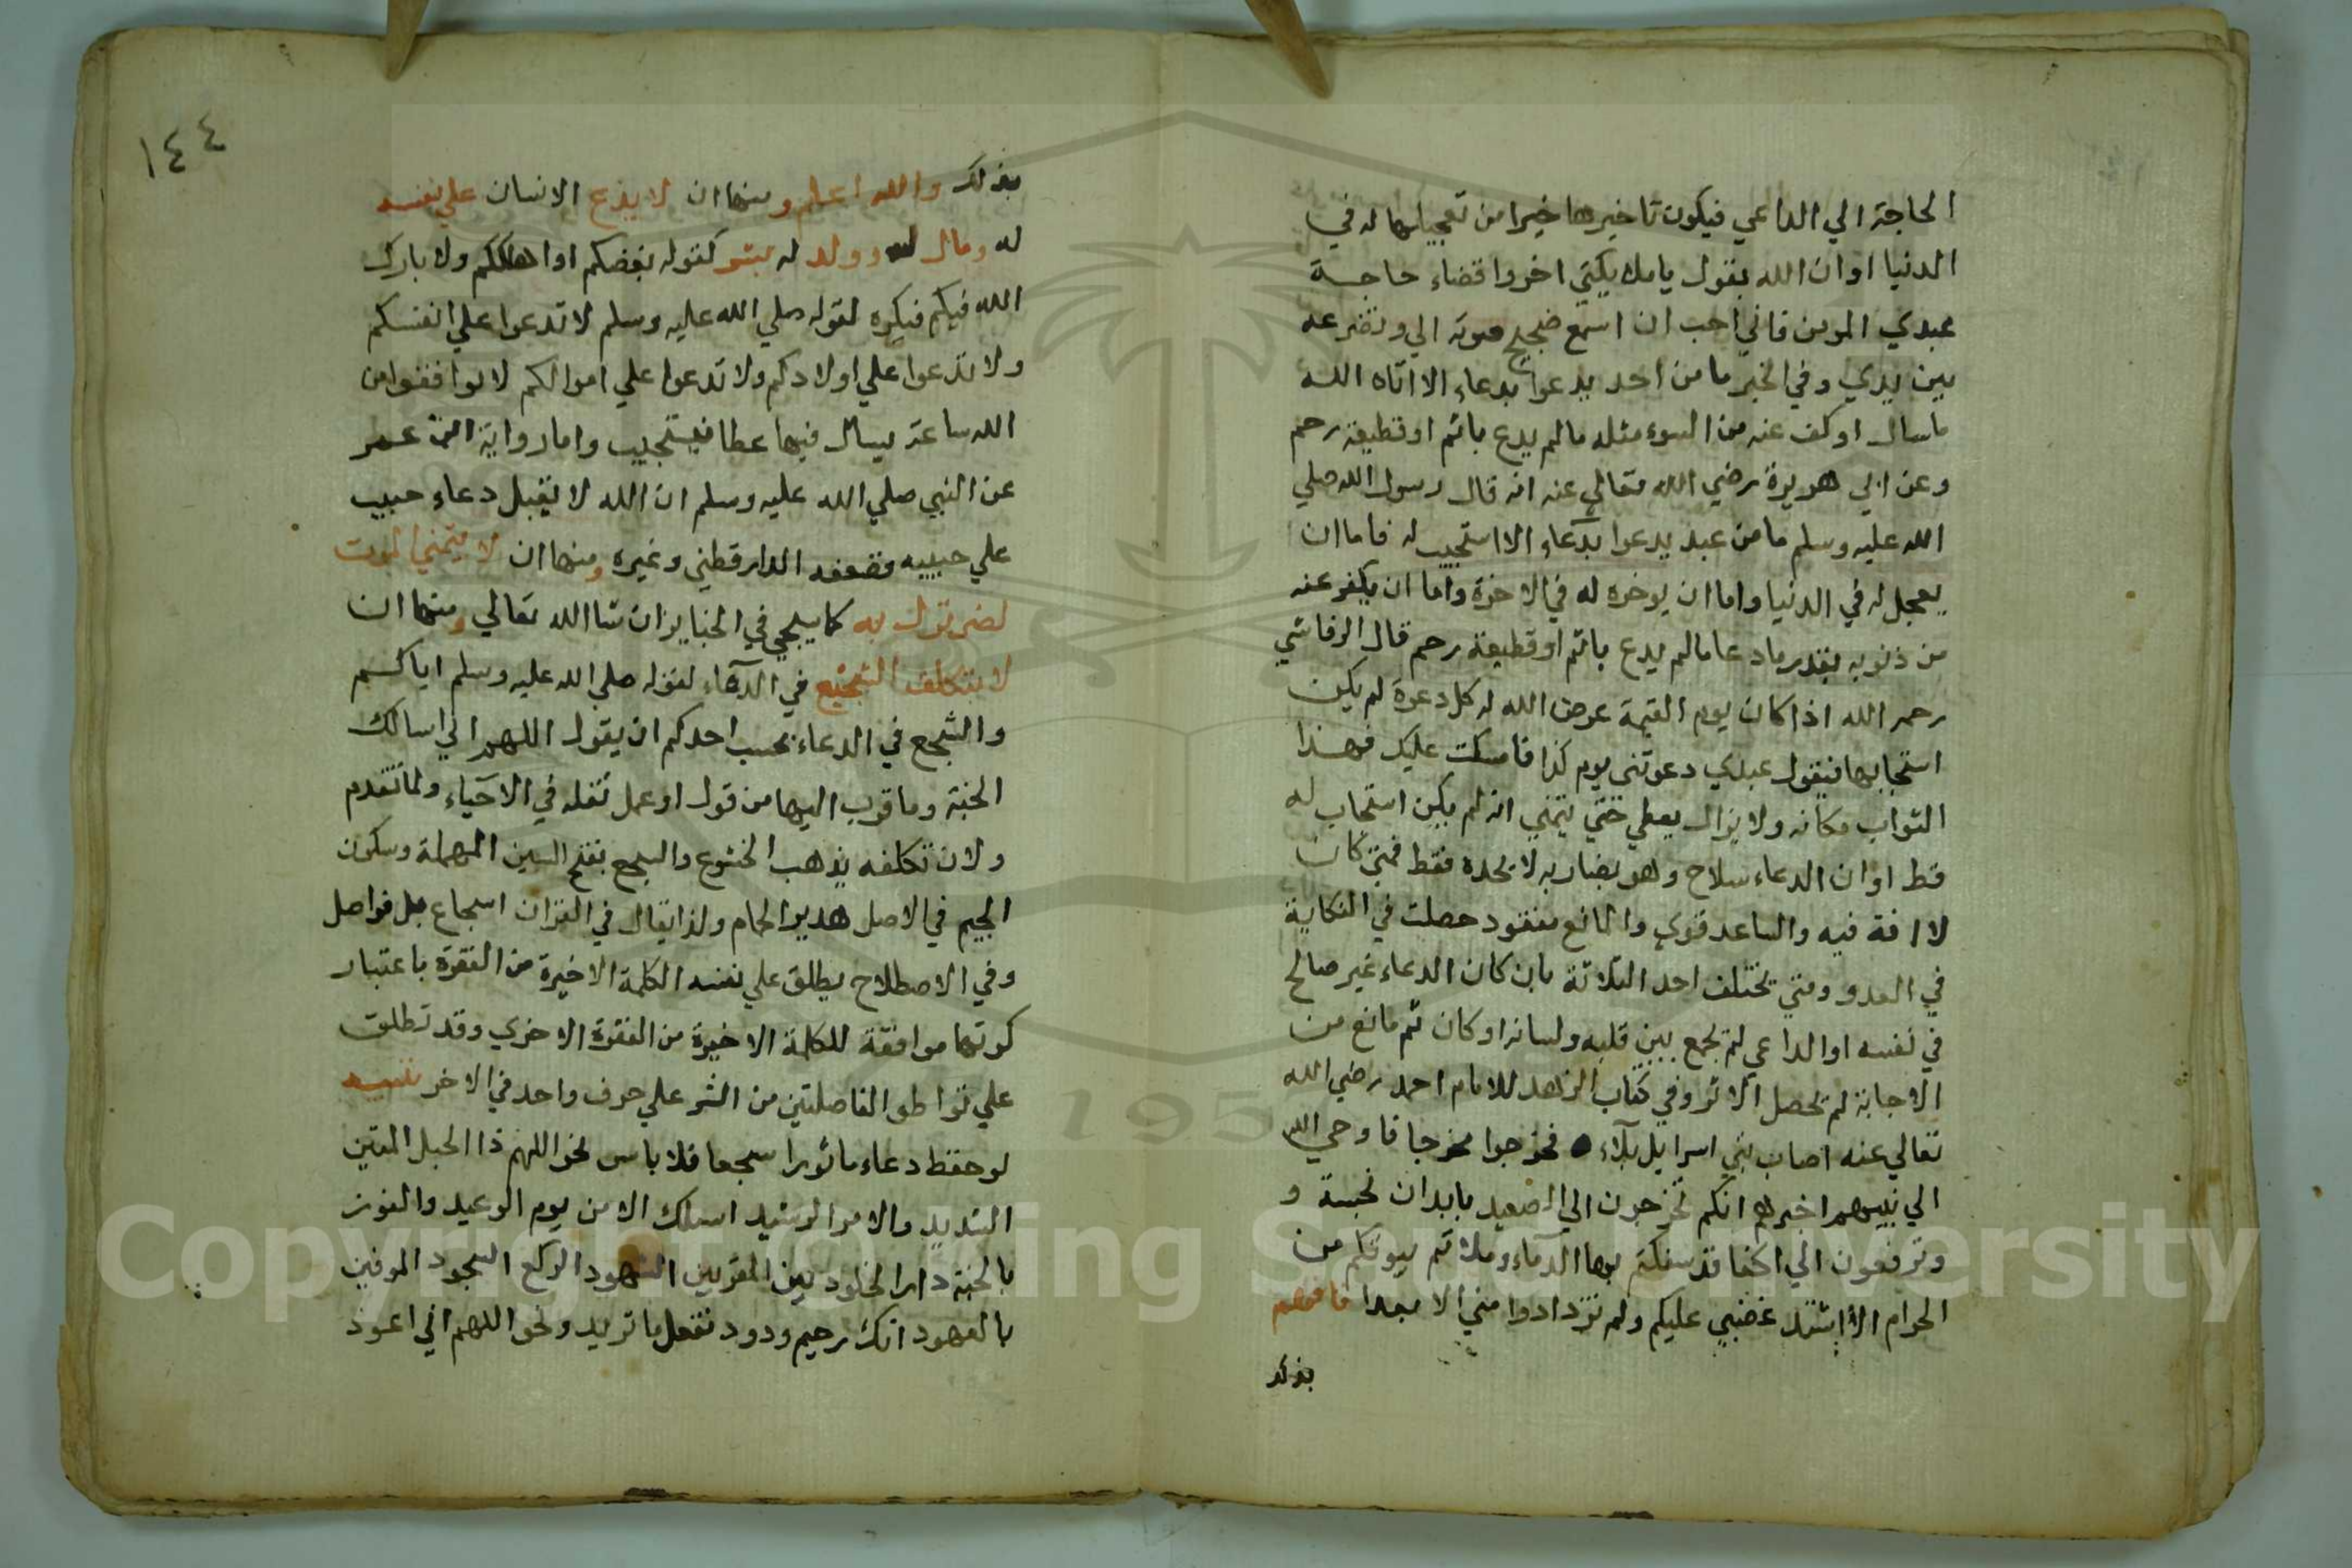 الحاجة الي الداعي فيكون تاخيرها خيرا من تعجيلها له في
الدنيا او ان الله يقول يا ملايكتي اخروا قضاء حاجة
عبدي المومن فاني احب ان اسمع ضجيج صوته الي وتضرعه
بين يدي وفي الخبر ما من احد يدعوا بدعاء الا اتاه الله
ماسال او كف عنه من السوء مثله مالم يدع باثم او قطيعة رحم
وعن ابي هريرة رضي الله تعالي عنه انه قال رسول الله صلي
الله عليه وسلم ما من عبد يدعوا بدعاء الا استجيب له فاما ان
يعجل له في الدنيا واما ان يوخره له في الاخرة واما ان يكفر عنه
من ذنوبه بقدر ما دعا مالم يدع باثم او قطيعة رحم قال الرقاشي
رحمه الله اذا كان يوم القيمة عرض الله له كل دعوة لم يكن
استجابها فيقول عبدي دعوتني يوم كذا فامسكت عليك فهذا
الثواب مكانه ولا يزال يعطي حتي يتمني انه لم يكن استجاب له
قط او ان الدعاء سلاح وهو بضاربه لا بحده فقط فمتي كان
لا افة فيه والساعد قوي والمانع مفقود حصلت في النكاية
في العدو ومتي تختلف احد الثلاثة بان كان الدعاء غير صالح
في نفسه او الداعي لم يجمع بين قلبه ولسانه او كان ثم مانع من
الاجابة لم يحصل الاثر وفي كتاب الزهد للامام احمد رضي الله
تعالي عنه اصاب بني اسرايل بلاء فخرجوا مخرجا فاوحي الله
الي نبيهم اخبرهم انكم تخرجون الي الصعيد بابدان نجسة و
وترفعون الي اكفا قد سفكتم بها الدماء وملاتم بيوتكم من
الحرام الان اشتد غضبي عليكم ولم تزدادوا مني الا بعدا فافهم
بذلك
١٤٤
بذلك والله اعلم ومنها ان لا يدع الانسان علي نفسه
له ومال له وولد له بشر كقوله بغضكم او اهلككم ولا بارك
الله فيكم فيكره لقوله صلي الله عليه وسلم لا تدعوا علي انفسكم
ولا تدعوا علي اولادكم ولا تدعوا علي اموالكم لا توافقوا من
الله ساعة يسال فيها عطا فيستجيب واما رواية ابن عمر
عن النبي صلي الله عليه وسلم ان الله لا يقبل دعاء حبيب
علي حبيبه فضعفه الدارقطني وغيره ومنها ان لا يتمني الموت
لضر نزل به كما سيجي في الجنايز ان شا الله تعالي ومنها ان
لا يتكلف التسجيع في الدعاء لقوله صلي الله عليه وسلم اياكم
والسجع في الدعاء بحسب احدكم ان يقول اللهم اني اسالك
الجنة وما قرب اليها من قول او عمل نقله في الاحياء ولما تقدم
ولان تكلفه يذهب الخشوع والسجع بفتح السين المهملة وسكون
الجيم في الاصل هدير الحمام ولذا يقال في القران اسجاع بل فواصل
وفي الاصطلاح يطلق علي نفسه الكلمة الاخيرة من الفقرة باعتبار
كونها موافقة للكلمة الاخيرة من الفقرة الاخري وقد تطلق
علي تواطو الفاصلتين من النثر علي حرف واحد في الاخر تنبيه
لو حفظ دعاء ماثورا سجعا فلا باس نحو اللهم ذا الحبل المتين
الشديد والامر الرشيد اسالك الامن يوم الوعيد والفوز
بالجنة دار الخلود بين المقربين الشهود الركع السجود الموفين
بالعهود انك رحيم ودود تفعل ما تريد ونحو اللهم اني اعوذ